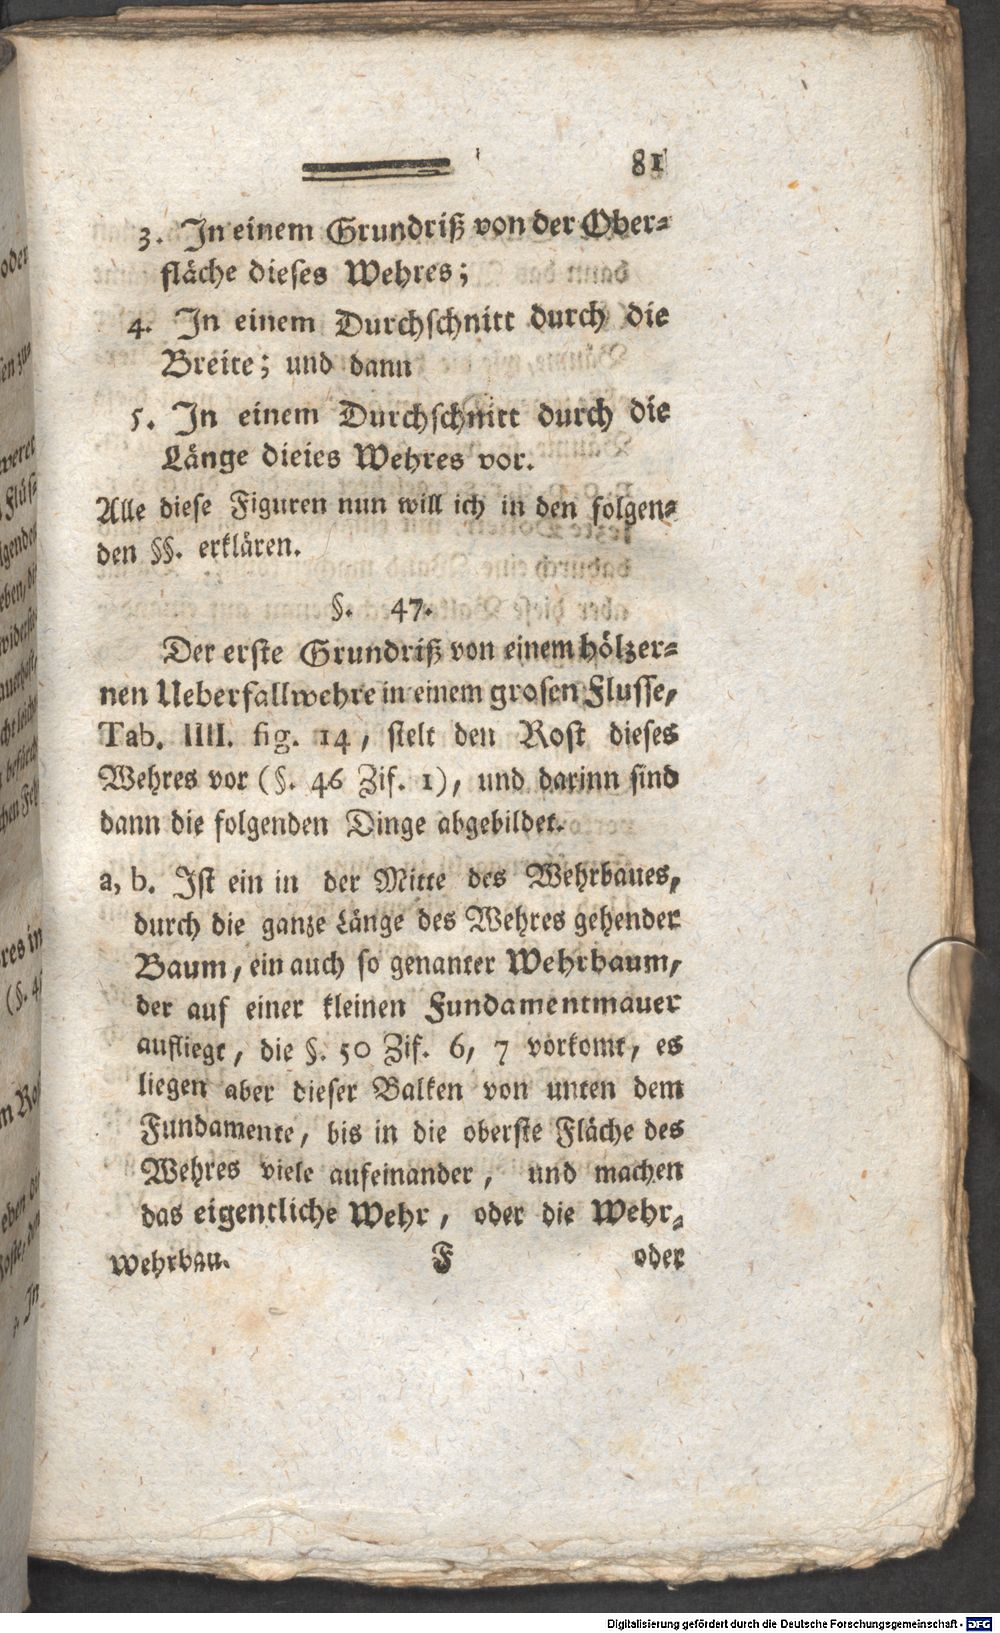 81
3. In einem Grundriß von der Ober-
fläche dieses Wehres;
4. In einem Durchschnitt durch die
Breite; und dann
5. In einem Durchschnitt durch die
Länge dieies Wehres vor.
Alle diese Figuren nun will ich in den folgen-
den §§. erklären.
§. 47.
Der erste Grundriß von einem hölzer-
nen Ueberfallwehre in einem grosen Flusse,
Tab. IIII. fig. 14, stelt den Rost dieses
Wehres vor (§. 46 Zif. 1), und darinn sind
dann die folgenden Dinge abgebildet.
a, b. Ist ein in der Mitte des Wehrbaues,
durch die ganze Länge des Wehres gehender
Baum, ein auch so genanter Wehrbaum,
der auf einer kleinen Fundamentmauer
aufliegt, die §. 50 Zif. 6, 7 vorkomt, es
liegen aber dieser Balken von unten dem
Fundamente, bis in die oberste Fläche des
Wehres viele aufeinander, und machen
das eigentliche Wehr, oder die Wehr-
Wehrbau. F oder
Digitalisierung gefördert durch die Deutsche Forschungsgemeinschaft - DFG